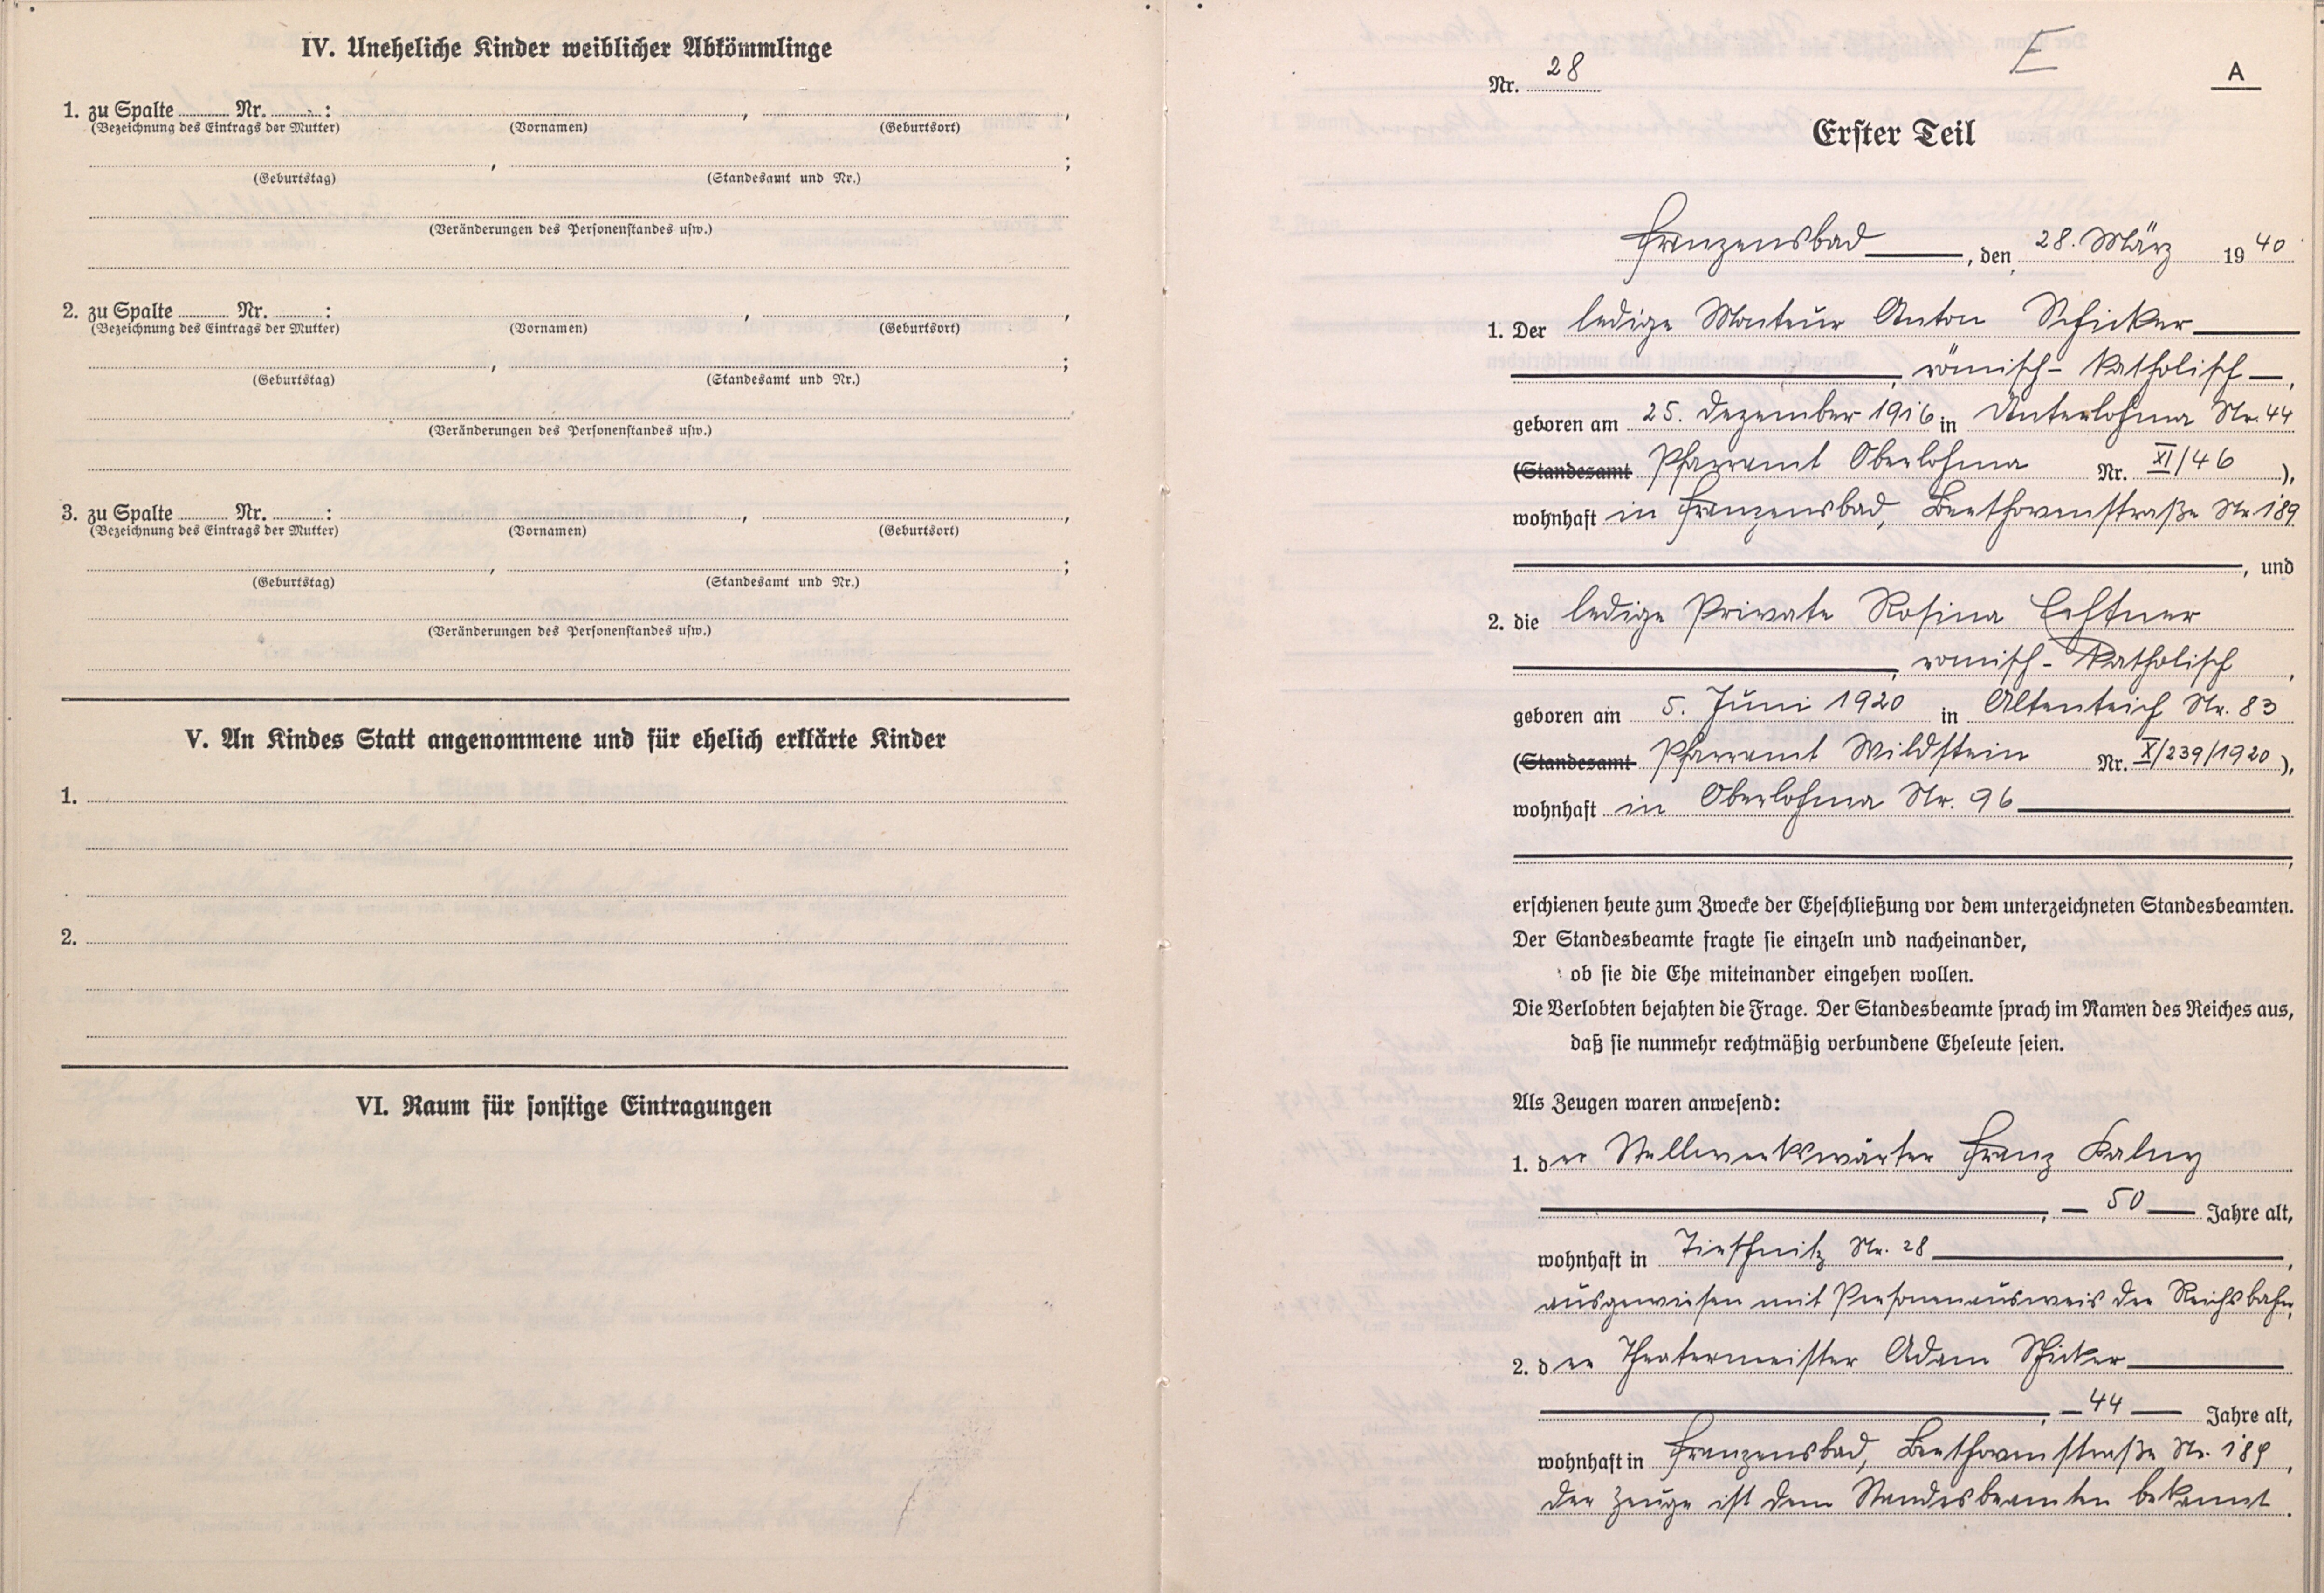 IV. Uneheliche Kinder weiblicher Abkömmlinge
1. zu Spalte ......... Nr. ......... : , ,
(Bezeichnung des Eintrags der Mutter) (Vornamen) (Geburtsort)
, ;
(Geburtstag) (Standesamt und Nr.)
(Veränderungen des Personenstandes usw.)
2. zu Spalte ......... Nr. ......... : , ,
(Bezeichnung des Eintrags der Mutter) (Vornamen) (Geburtsort)
, ;
(Geburtstag) (Standesamt und Nr.)
(Veränderungen des Personenstandes usw.)
3. zu Spalte ......... Nr. ......... : , ,
(Bezeichnung des Eintrags der Mutter) (Vornamen) (Geburtsort)
, ;
(Geburtstag) (Standesamt und Nr.)
(Veränderungen des Personenstandes usw.)
V. An Kindes Statt angenommene und für ehelich erklärte Kinder
1.
2.
VI. Raum für sonstige Eintragungen
E
A
Nr. 28
Erster Teil
Franzensbad, den 28. März 1940
1. Der ledige Monteur Anton Schicker
, römisch-katholisch,
geboren am 25. Dezember 1916 in Unterlohma Nr. 44
(Standesamt Pfarramt Oberlohma Nr. XI/46),
wohnhaft in Franzensbad, Beethovenstraße Nr. 189
, und
2. die ledige Private Rosina Lehtner
, römisch-katholisch,
geboren am 5. Juni 1920 in Altenteich Nr. 83
(Standesamt Pfarramt Wildstein Nr. X/239/1920),
wohnhaft in Oberlohma Nr. 96
,
erschienen heute zum Zwecke der Eheschließung vor dem unterzeichneten Standesbeamten.
Der Standesbeamte fragte sie einzeln und nacheinander,
ob sie die Ehe miteinander eingehen wollen.
Die Verlobten bejahten die Frage. Der Standesbeamte sprach im Namen des Reiches aus,
daß sie nunmehr rechtmäßig verbundene Eheleute seien.
Als Zeugen waren anwesend:
1. der Stellwerkwärter Franz Kalny
, 50 Jahre alt,
wohnhaft in Tirschnitz Nr. 28,
ausgewiesen mit Personenausweis der Reichsbahn,
2. der Theatermeister Adam Schicker
, 44 Jahre alt,
wohnhaft in Franzensbad, Beethovenstraße Nr. 189,
der Zeuge ist dem Standesbeamten bekannt.